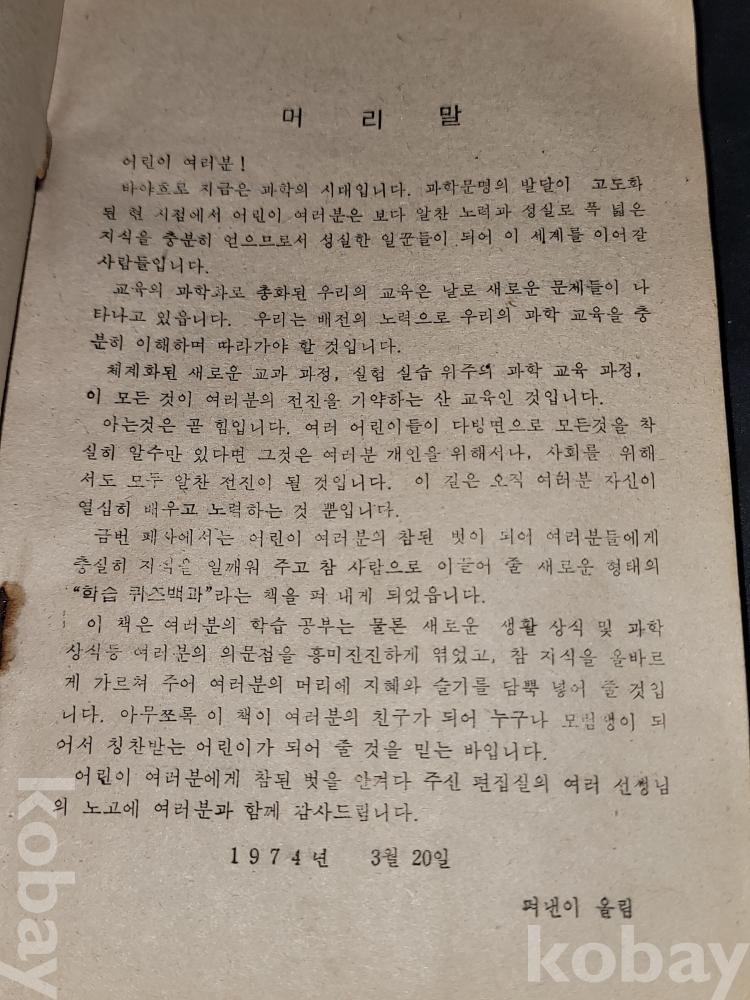 머 리 말
어린이 여러분!
바야흐로 지금은 과학의 시대입니다. 과학문명의 발달이 고도화
된 현 시점에서 어린이 여러분은 보다 알찬 노력과 성실로 폭 넓은
지식을 충분히 얻으므로서 성실한 일꾼들이 되어 이 세계를 이어갈
사람들입니다.
교육의 과학화로 총화된 우리의 교육은 날로 새로운 문제들이 나
타나고 있읍니다. 우리는 배전의 노력으로 우리의 과학 교육을 충
분히 이해하며 따라가야 할 것입니다.
체계화된 새로운 교과 과정, 실험 실습 위주의 과학 교육 과정,
이 모든 것이 여러분의 전진을 기약하는 산 교육인 것입니다.
아는것은 곧 힘입니다. 여러 어린이들이 다방면으로 모든것을 착
실히 알수만 있다면 그것은 여러분 개인을 위해서나, 사회를 위해
서도 모두 알찬 전진이 될 것입니다. 이 길은 오직 여러분 자신이
열심히 배우고 노력하는 것 뿐입니다.
금번 폐사에서는 어린이 여러분의 참된 벗이 되어 여러분들에게
충실히 지식을 일깨워 주고 참 사람으로 이끌어 줄 새로운 형태의
"학습 퀴즈백과"라는 책을 펴 내게 되었읍니다.
이 책은 여러분의 학습 공부는 물론 새로운 생활 상식 및 과학
상식등 여러분의 의문점을 흥미진진하게 엮었고, 참 지식을 올바르
게 가르쳐 주어 여러분의 머리에 지혜와 슬기를 담뿍 넣어 줄 것입
니다. 아무쪼록 이 책이 여러분의 친구가 되어 누구나 모범생이 되
어서 칭찬받는 어린이가 되어 줄 것을 믿는 바입니다.
어린이 여러분에게 참된 벗을 안겨다 주신 편집실의 여러 선생님
의 노고에 여러분과 함께 감사드립니다.
1974년 3월 20일
펴낸이 올림
kobay
kobay